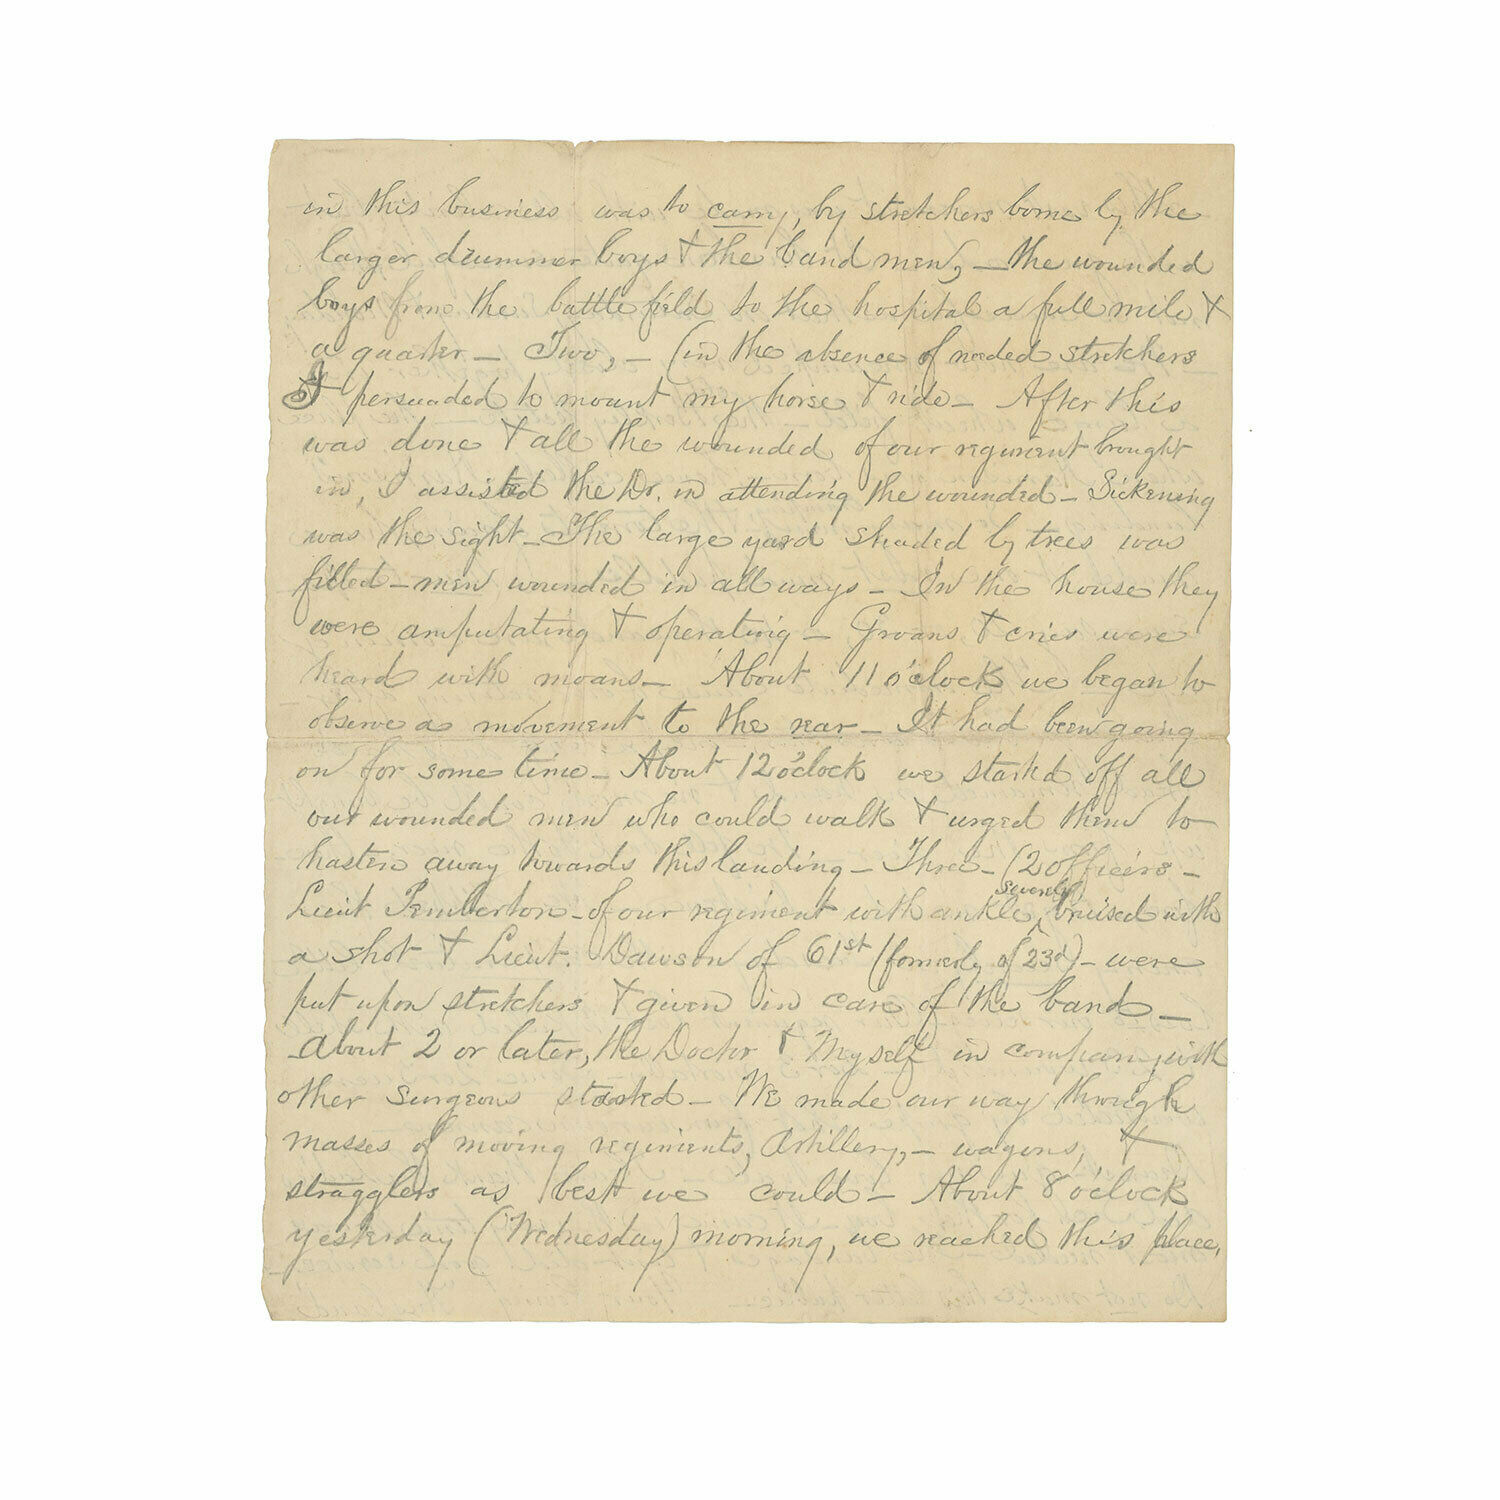 in this business was to carry, by stretchers borne by the
larger drummer boys & the band men, – the wounded
boys from the battle field to the hospital a full mile &
a quarter – Two, – (in the absence of needed stretchers
I persuaded to mount my horse & ride – After this
was done & all the wounded of our regiment brought
in, I assisted the Dr. in attending the wounded – Sickening
was the sight – The large yard shaded by trees was
filled – men wounded in all ways – In the house they
were amputating & operating – Groans & cries were
heard with moans – About 11 o'clock we began to
observe a movement to the rear – It had been going
on for some time – About 12 o'clock we started off all
our wounded men who could walk & urged them to
hasten away towards this landing – Three – (2 officers –
Lieut Pemberton – of our regiment with ankle severely bruised with
a shot & Lieut. Dawson of 61st (formerly of 23d) – were
put upon stretchers & given in care of the band –
about 2 or later, the Doctor & Myself in company with
other Surgeons started – We made our way through
masses of moving regiments, Artillery, – wagons, &
stragglers as best we could – About 8 o'clock
yesterday (Wednesday) morning, we reached this place,